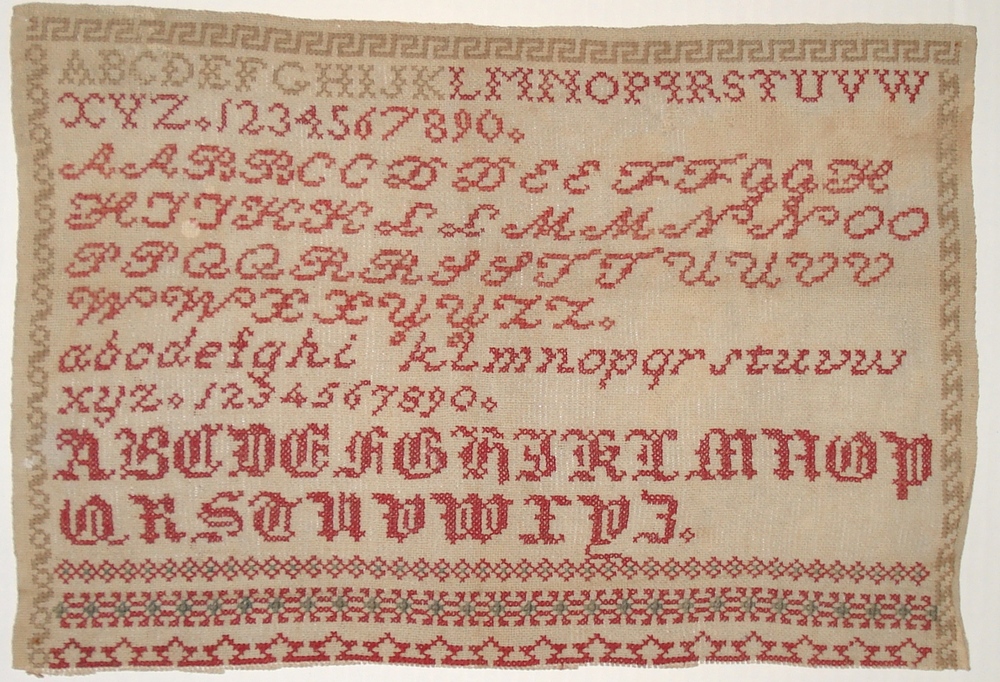 ABCDEFGHIJKLMNOPQRSTUVW
XYZ.1234567890.
AABBCCDDEEFFGGH
HIIKKLLMMNNOO
PPQQRRSSTTUUVV
WWXXYYZZ.
abcdefghi klmnopqrstuvw
xyz.1234567890.
ABCDEFGHIKLMNOP
QRSTUVWXYZ.